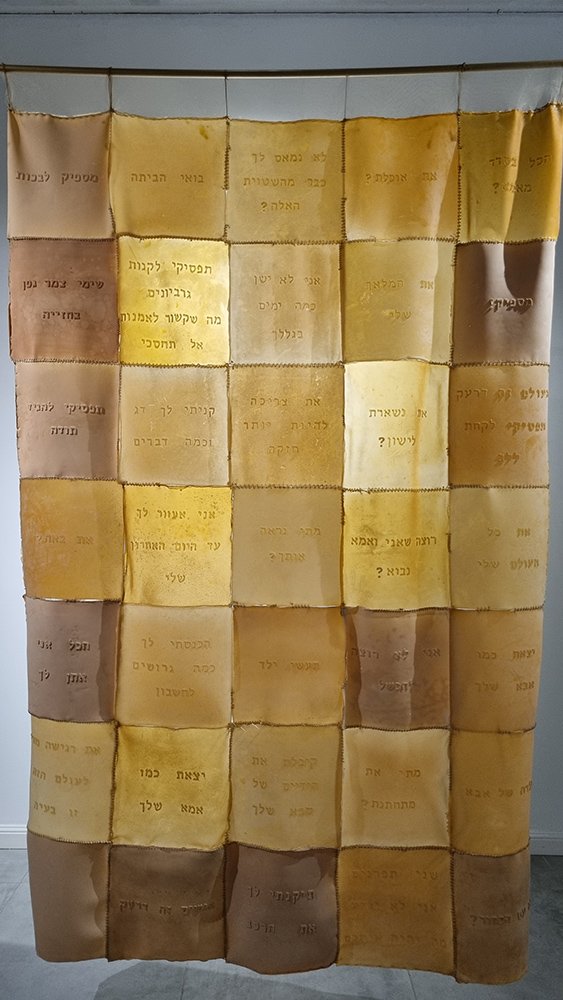 הכל בסדר
מאמי?
את אוכלת?
לא נמאס לך
כבר מהשטויות
האלה?
בואי הביתה
מספיק לבכות
את המלאך
שלי
אני לא ישן
כמה ימים
בגללך
תפסיקי לקנות
גרביונים
מה שקשור לאמנות
אל תחסכי
שימי צמר גפן
בחזייה
העולם זה דרעק
תפסיקי לקחת
ללב
את נשארת
לישון?
את צריכה
להיות יותר
חזקה
קניתי לך דג
וכמה דברים
תפסיקי להגיד
תודה
את כל
העולם שלי
רוצה שאני ואמא
נבוא?
מתי נראה
אותך?
אני אעזור לך
עד היום האחרון
שלי
את באה?
יצאת כמו
אבא שלך
אני לא רוצה
תעשי ילד
הכנסתי לך
כמה גרושים
לחשבון
הכל אני
אתן לך
של אבא
מתי את
מתחתנת?
קיבלת את
הידיים של
סבא שלך
יצאת כמו
אמא שלך
את רגישה
לעולם הזה
זו בעיה
שני תפרנים
אני לא
תיקנתי לך
את הרכב
זה דרעק